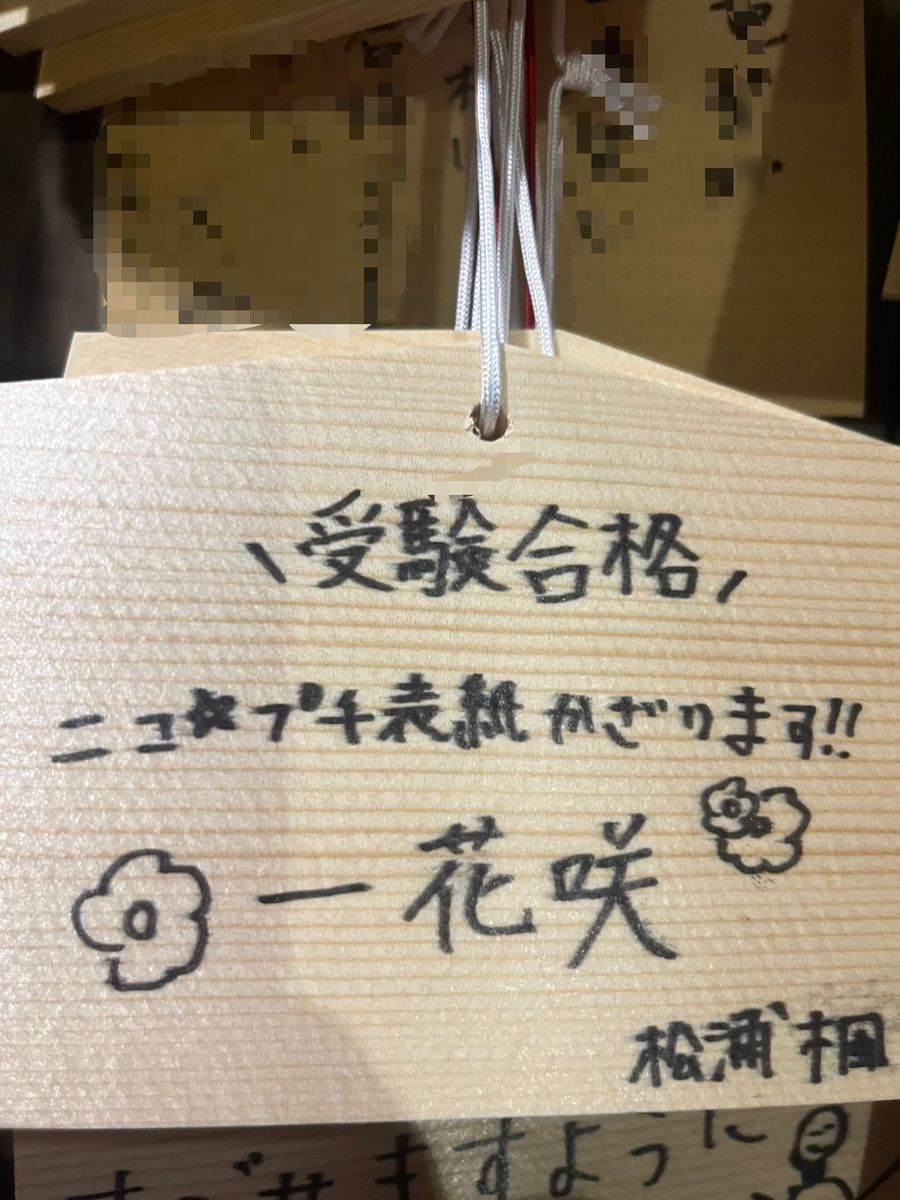 \受験合格/
ニコ☆プチ表紙かざります!!
一花咲
松浦梱
すように